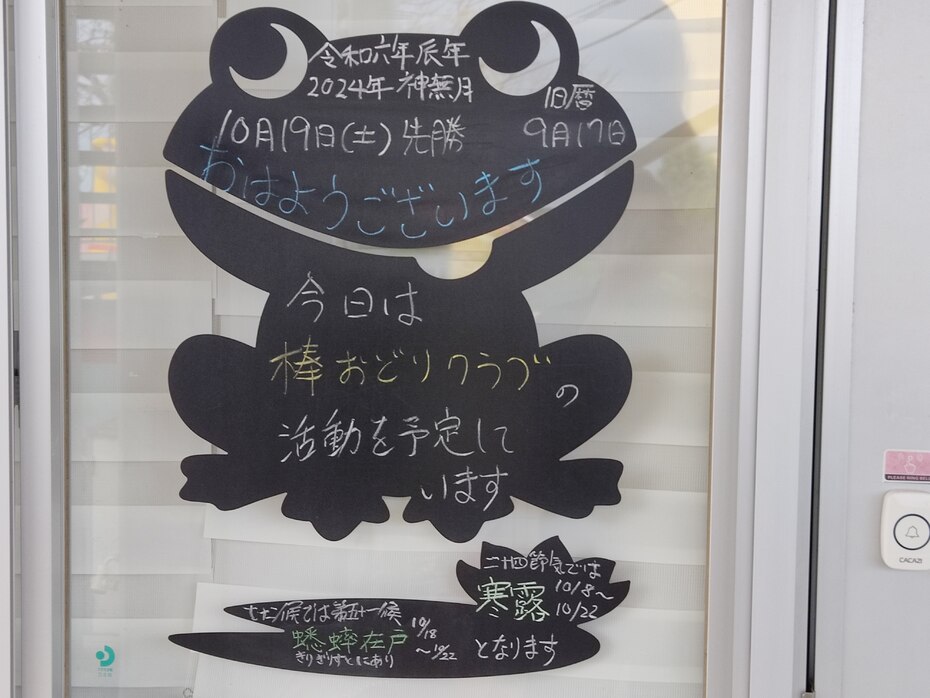 令和六年辰年
2024年 神無月
旧暦
10月19日(土) 先勝 9月17日
おはようございます
今日は
棒おどりクラブの
活動を予定して
います
二十四節気では
寒露 10/8〜
10/22
となります
七十二候では第五十一候
蟋蟀在戸
きりぎりすとにあり
10/18
〜10/22
PLEASE RING BELL
CACAZI